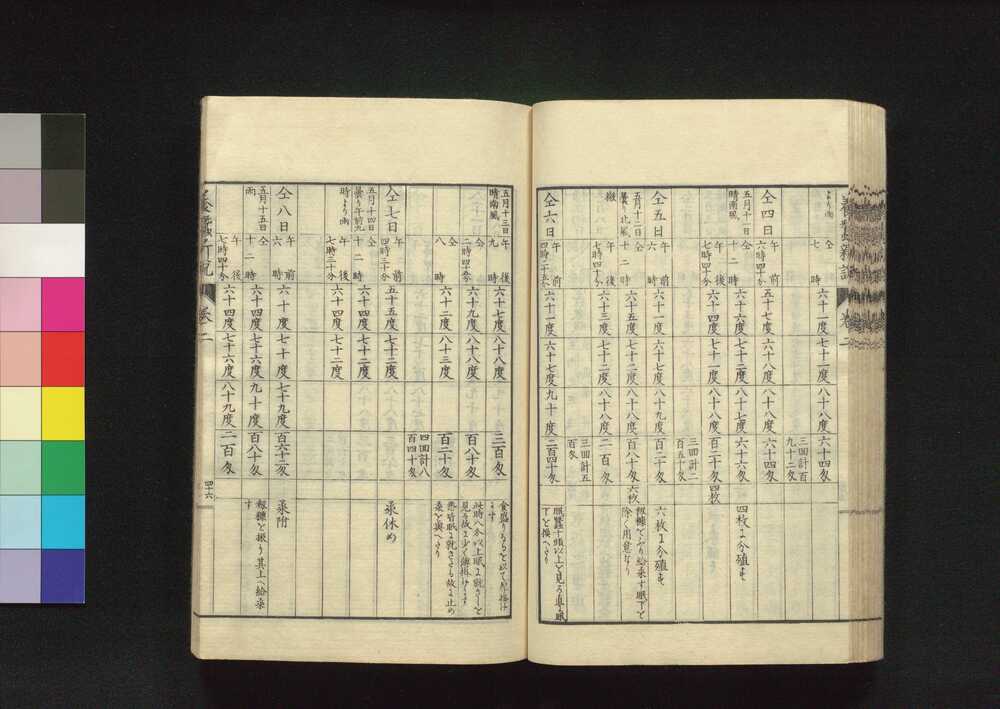 養蠶新説 卷二
より雨
七時
六十一度 七十一度 八十八度 六十四匁
三回計百九十二匁
仝四日 午前六時四十分 五十七度 六十八度 八十八度 六十四匁
五月十一日晴南風 仝十二時 六十六度 七十二度 八十七度 六十六匁 四枚に分殖す
午後七時四十分 六十四度 七十一度 八十八度 百二十匁 四枚
三回計二百五十匁
仝五日 午前六時 六十一度 六十七度 八十九度 百二十匁 六枚に分殖す
五月十二日曇北風 仝十二時 六十五度 七十二度 八十八度 百八十匁 六枚 籾糠をふり給桑す眠下を除く用意なり
午後七時四十分 六十三度 七十二度 八十八度 二百匁
三回計五百匁
仝六日 午前四時二十五分 六十一度 六十七度 九十度 二百四十匁
五月十三日晴南風 午後九時 六十七度 八十八度 三百匁
仝二時四十分 六十九度 八十八度 百八十匁
仝八時 六十二度 八十三度 百二十匁
四回計八百四十匁
仝七日 午前四時三十分 五十五度 七十三度 桑休め
五月十四日曇り午前九時より雨 仝十二時 六十四度 七十二度
午後七時三十分 六十四度 七十二度
仝八日 午前六時 六十度 七十度 七十九度 百六十二匁 桑附
五月十五日雨 仝十二時 六十四度 七十六度 九十度 百八十匁 籾糠を振り其上へ給桑す
午後七時四十分 六十四度 七十六度 八十九度 二百匁
卷二
四十六